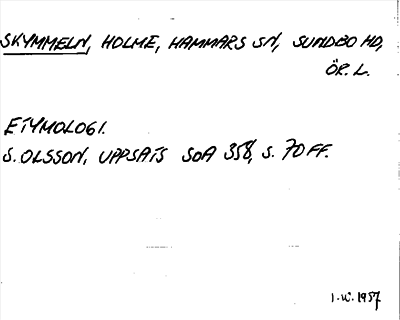 SKYMMELN, HOLME, HAMMARS SN, SUNDBO HD,
ÖR. L.
ETYMOLOGI.
S. OLSSON, UPPSATS SOA 358, S. 70 FF.
1957